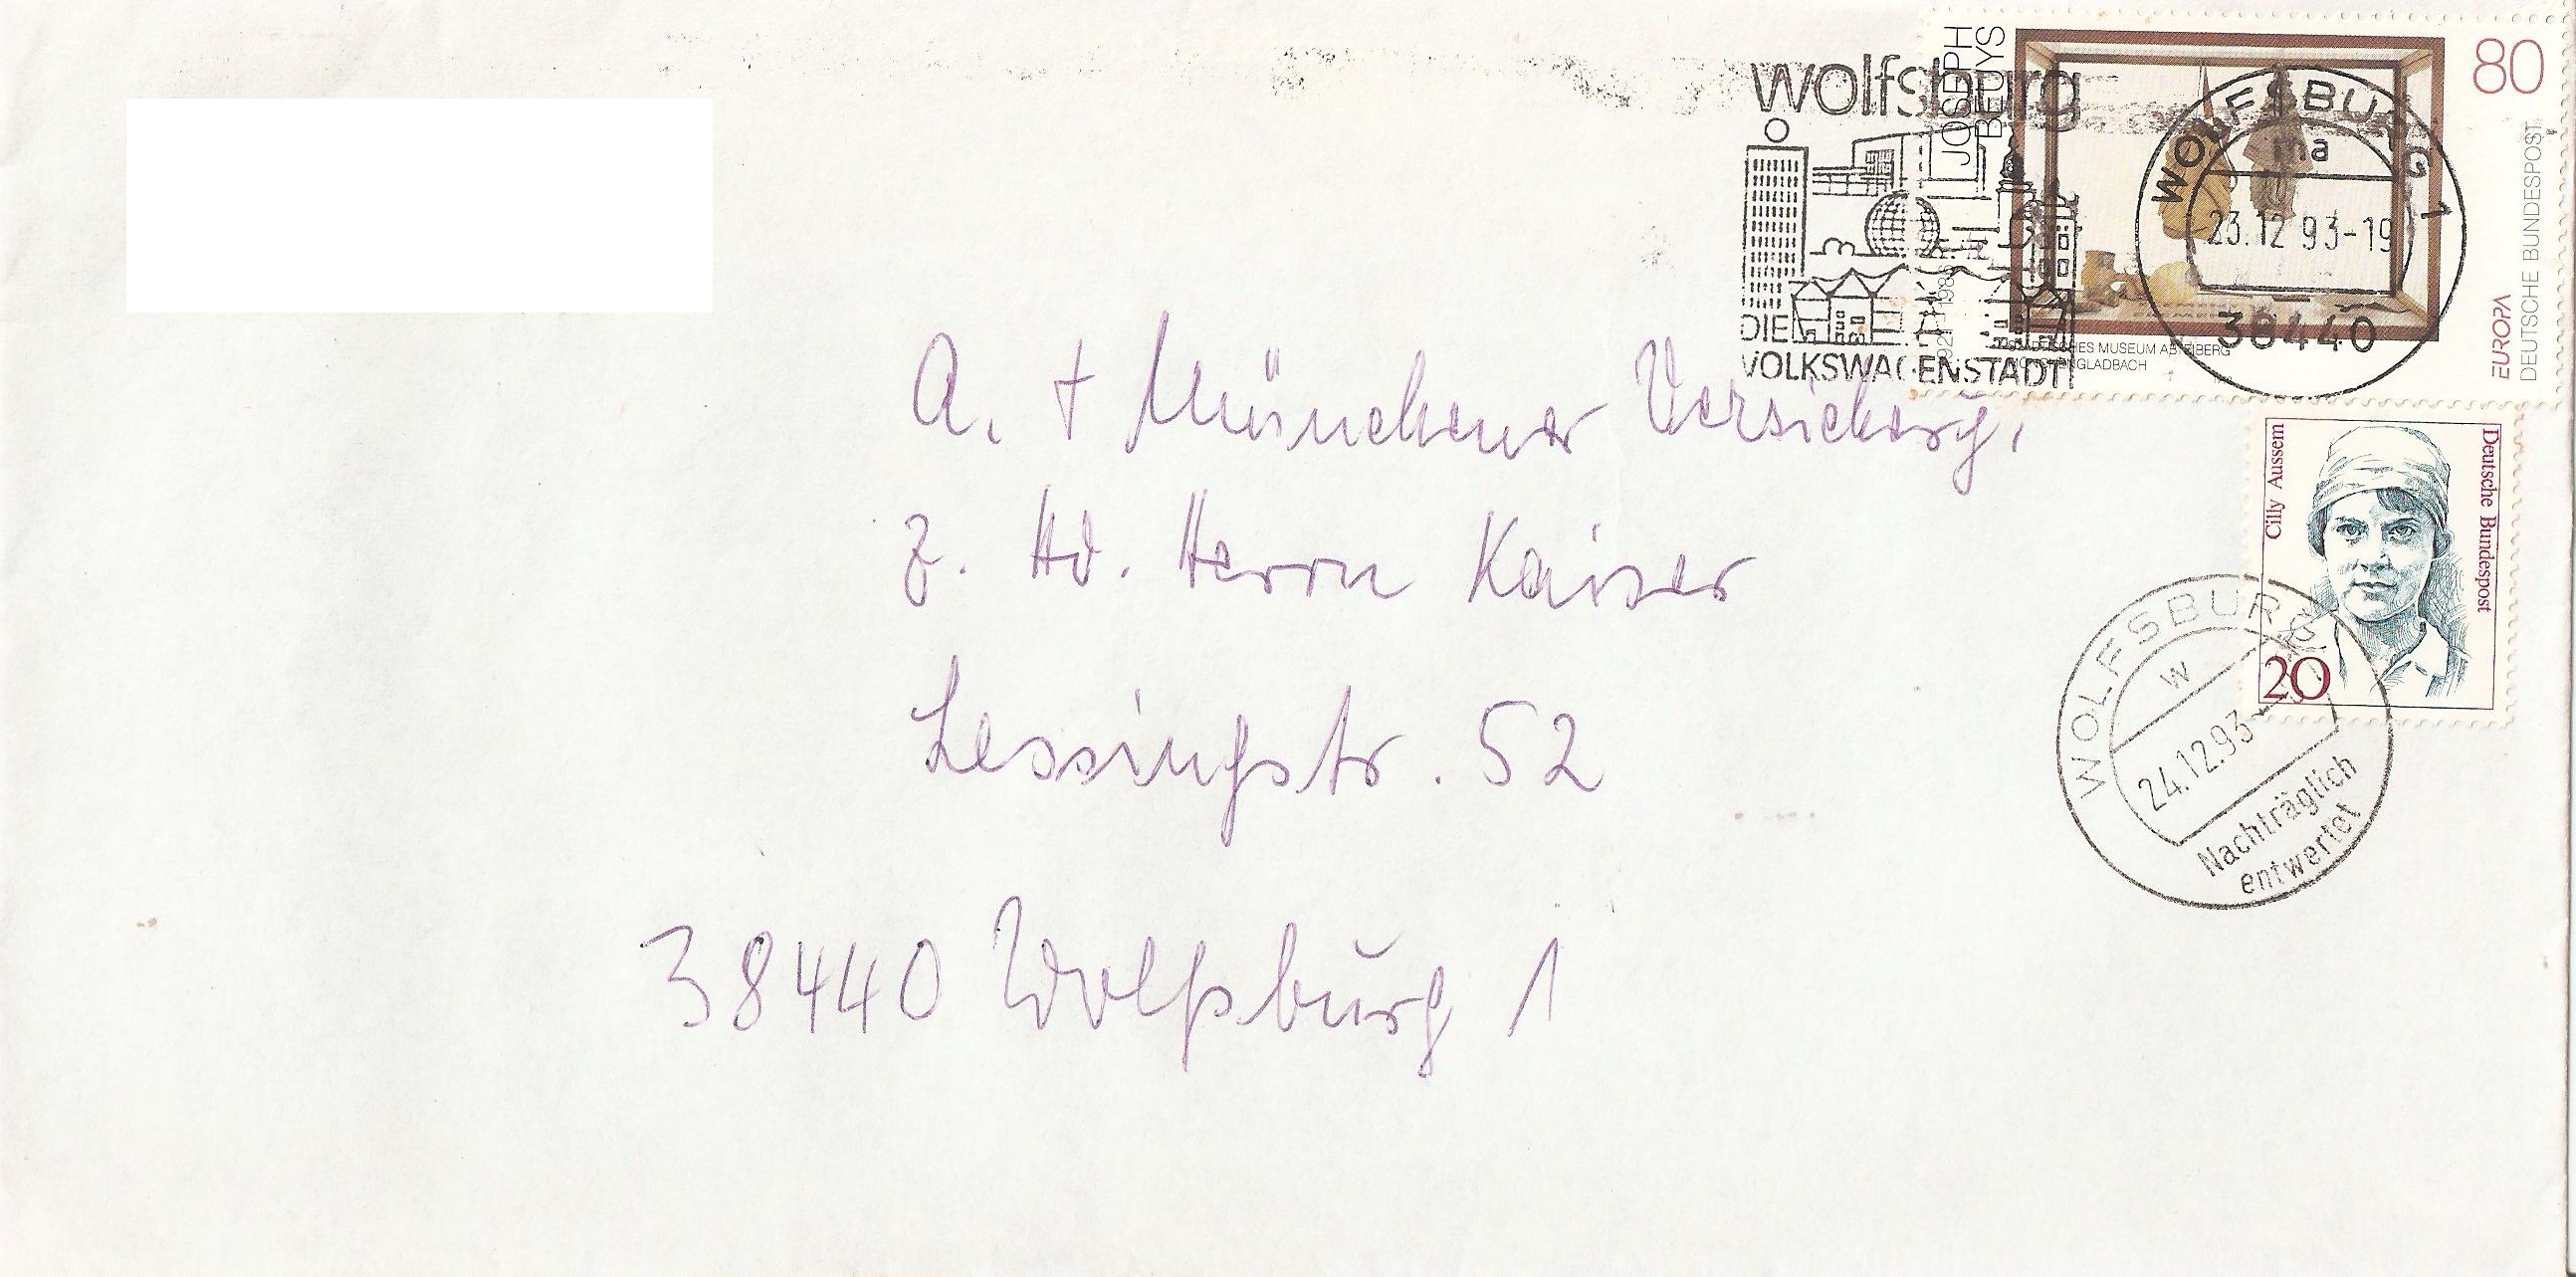 wolfsburg
DIE
VOLKSWAGENSTADT
JOSEPH
BEUYS
80
DEUTSCHE BUNDESPOST
EUROPA
WOLFSBURG 1
ma
23.12.93-19
38440
Cilly Aussem
Deutsche Bundespost
20
WOLFSBURG
w
24.12.93
Nachträglich
entwertet
A. + Münchener Versicherg.
z. Hd. Herrn Kaiser
Lessingstr. 52
38440 Wolfsburg 1